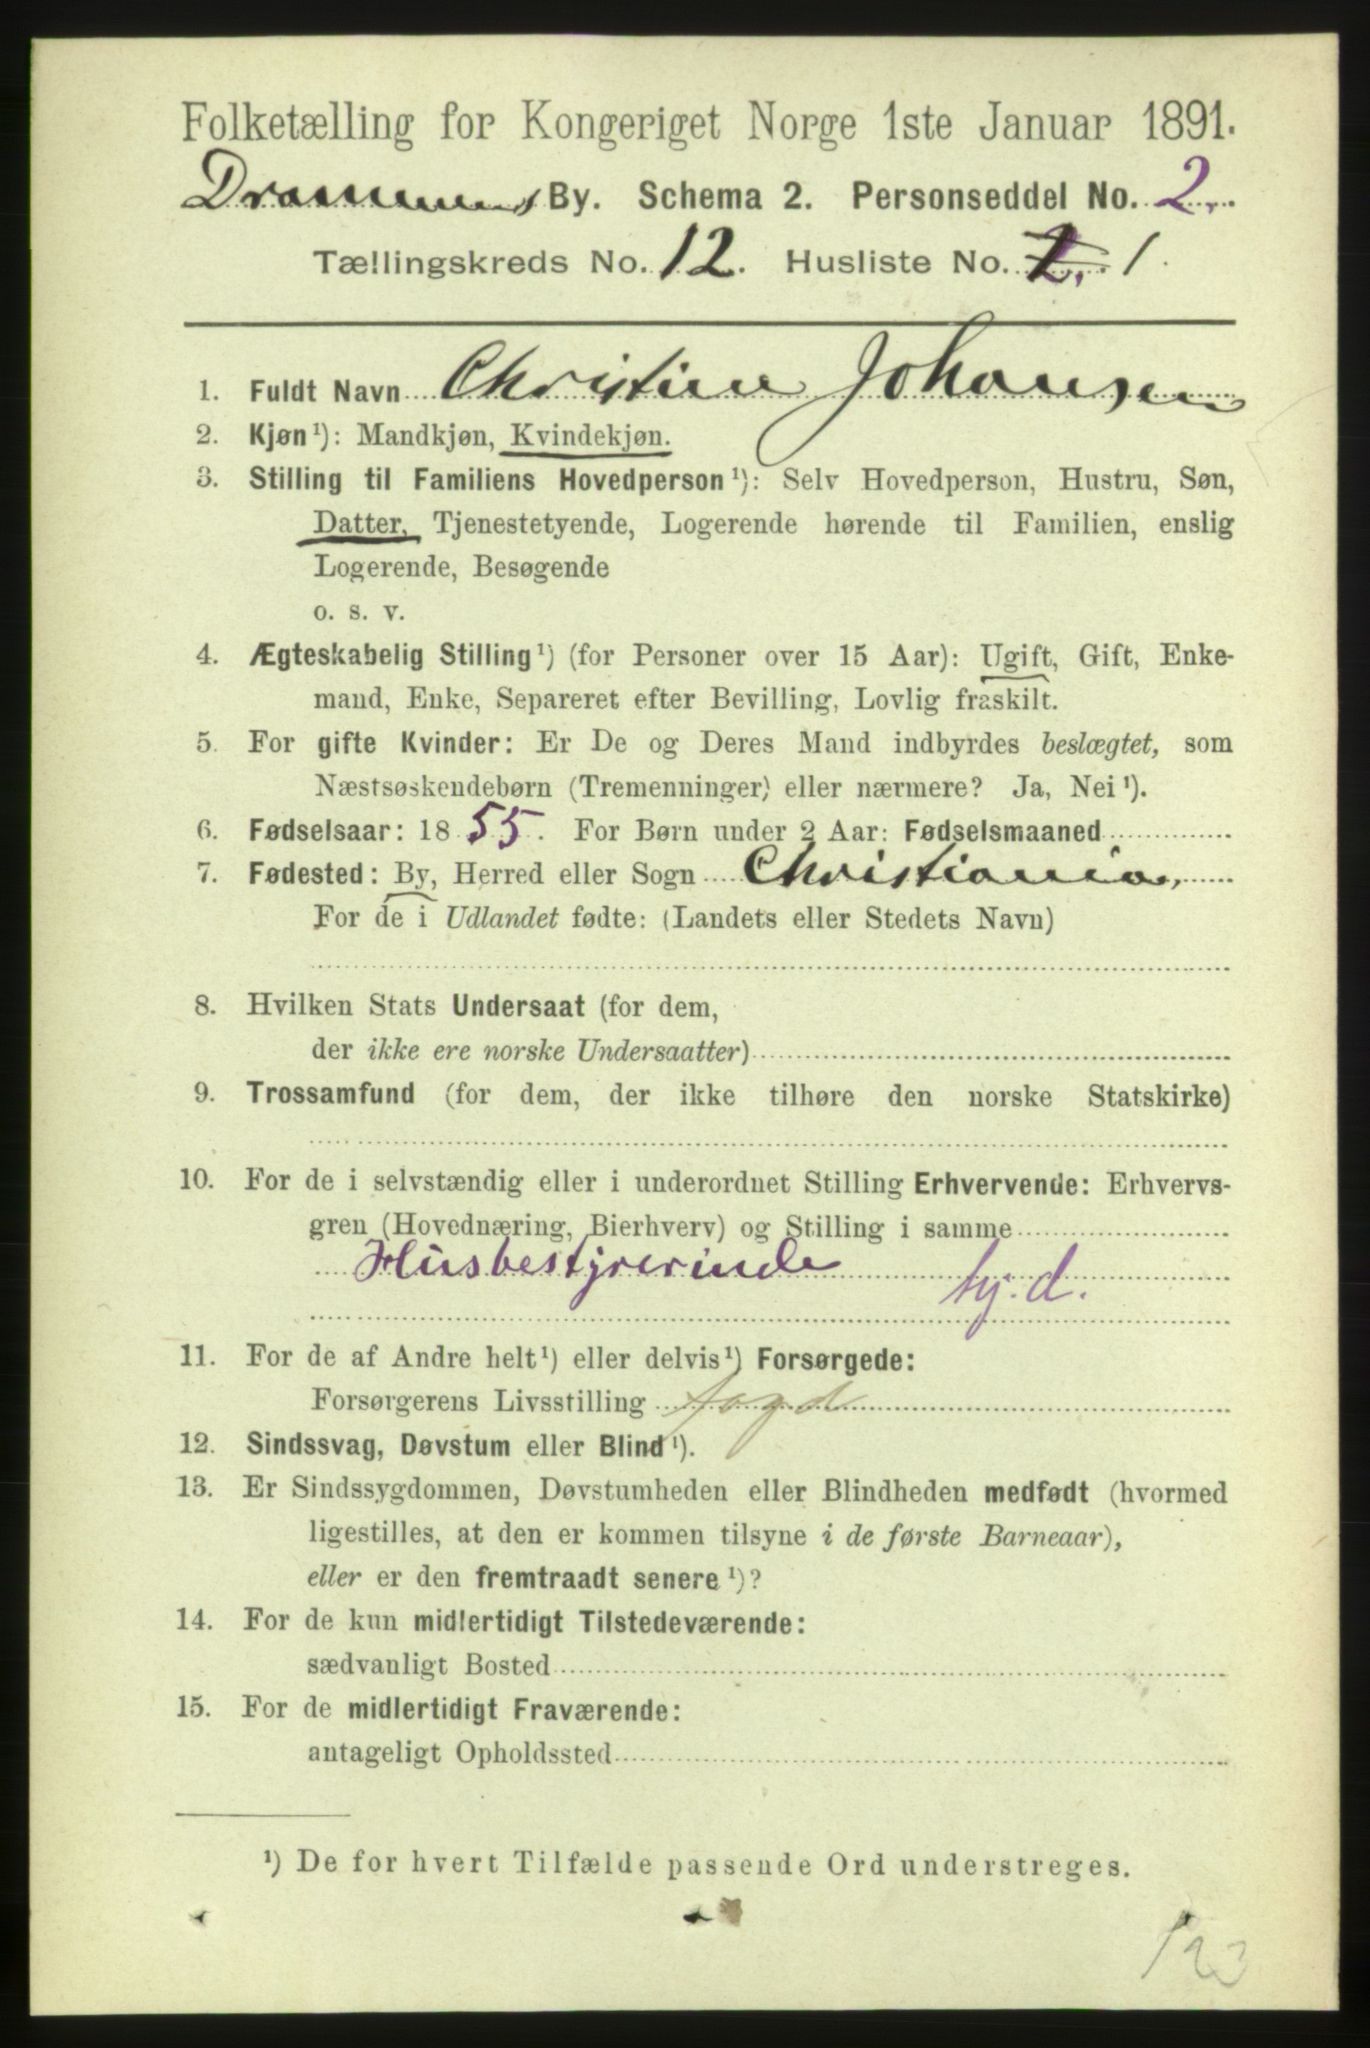 Folketælling for Kongeriget Norge 1ste Januar 1891.
Drammens By. Schema 2. Personseddel No. 2.
Tællingskreds No. 12. Husliste No. 2. 1.
1. Fuldt Navn Christine Johansen
2. Kjøn¹): Mandkjøn, Kvindekjøn.
3. Stilling til Familiens Hovedperson¹): Selv Hovedperson, Hustru, Søn,
Datter, Tjenestetyende, Logerende hørende til Familien, enslig
Logerende, Besøgende
o. s. v.
4. Ægteskabelig Stilling¹) (for Personer over 15 Aar): Ugift, Gift, Enke-
mand, Enke, Separeret efter Bevilling, Lovlig fraskilt.
5. For gifte Kvinder: Er De og Deres Mand indbyrdes beslægtet, som
Næstsøskendebørn (Tremenninger) eller nærmere? Ja, Nei¹).
6. Fødselsaar: 1855. For Børn under 2 Aar: Fødselsmaaned
7. Fødested: By, Herred eller Sogn Christiania,
For de i Udlandet fødte: (Landets eller Stedets Navn)
8. Hvilken Stats Undersaat (for dem,
der ikke ere norske Undersaatter)
9. Trossamfund (for dem, der ikke tilhøre den norske Statskirke)
10. For de i selvstændig eller i underordnet Stilling Erhvervende: Erhvervs-
gren (Hovednæring, Bierhverv) og Stilling i samme
Husbestyrerinde ty. d.
11. For de af Andre helt¹) eller delvis¹) Forsørgede:
Forsørgerens Livsstilling fogd
12. Sindssvag, Døvstum eller Blind¹).
13. Er Sindssygdommen, Døvstumheden eller Blindheden medfødt (hvormed
ligestilles, at den er kommen tilsyne i de første Barneaar),
eller er den fremtraadt senere¹)?
14. For de kun midlertidigt Tilstedeværende:
sædvanligt Bosted
15. For de midlertidigt Fraværende:
antageligt Opholdssted
¹) De for hvert Tilfælde passende Ord understreges.